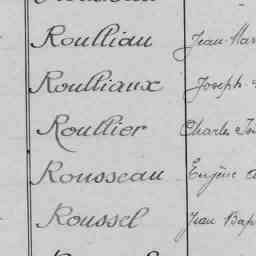 Roulliau Jean-Mar
Roulliaux Joseph
Roullier Charles Jos
Rousseau Eugène
Roussel Jean Bap